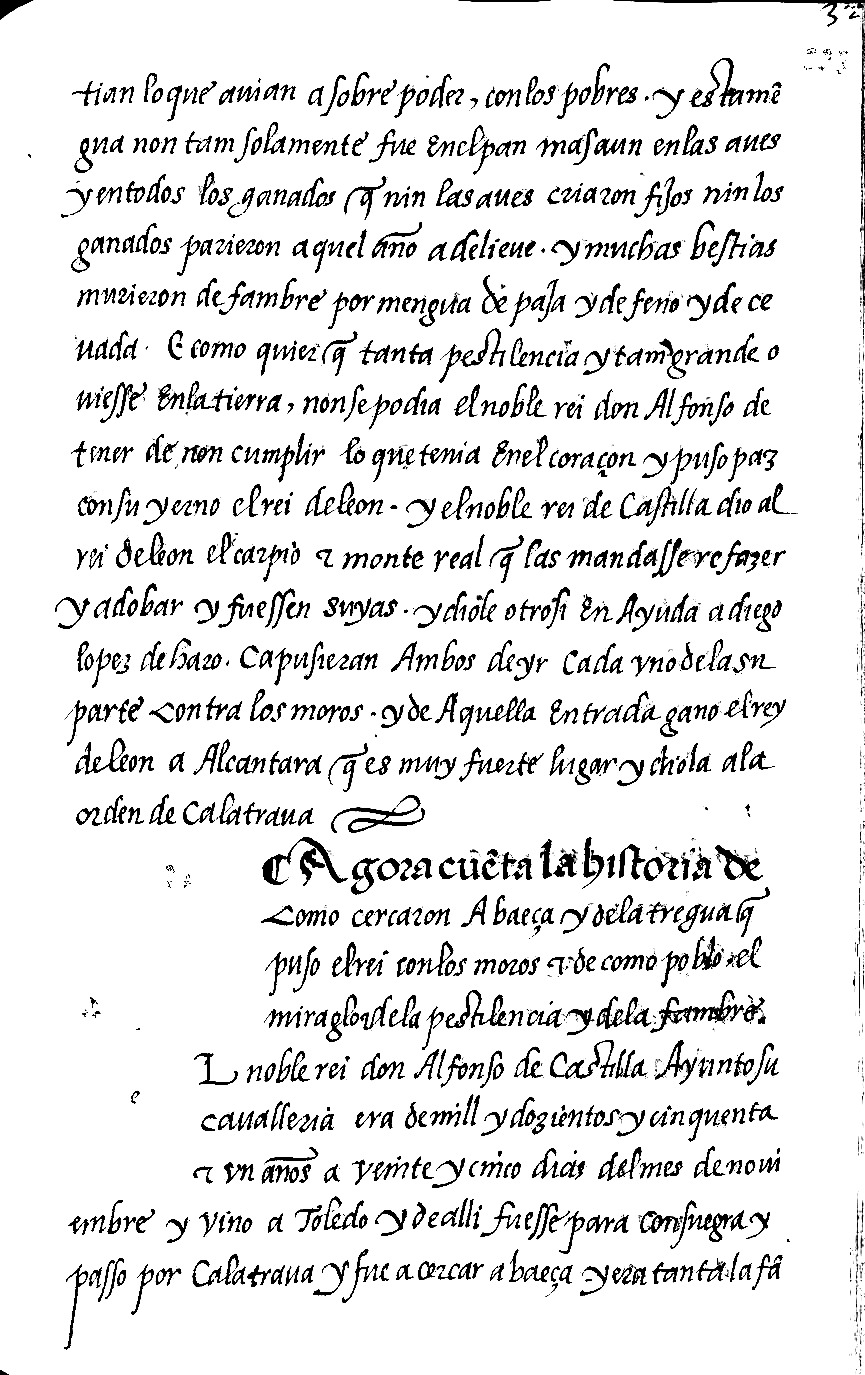 tian lo que auian a sobre poder, con los pobres. y esta mẽ
gua non tam solamente fue en el pan mas aun en las aues
y en todos los ganados q̃ nin las aues criaron fijos nin los
ganados parieron aquel año adelieue. y muchas bestias
murieron de fambre por mengua de paja y de feno y de ce
uada. E como quier q̃ tanta pestilencia y tam grande o
uiesse en la tierra, non se podia el noble rei don Alfonso de
tener de non cumplir lo que tenia en el coraçon y puso paz
con su yerno el rei de leon. y el noble rei de Castilla dio al
rei de leon el carpio τ monte real q̃ las mandasse refazer
y adobar y fuessen suyas. y diole otrosi en Ayuda a diego
lopez de haro. Ca pusieran Ambos de yr Cada vno de la su
parte contra los moros. y de Aquella entrada gano el rey
de leon a Alcantara q̃ es muy fuerte lugar y diola a la
orden de Calatraua
¶ Agora cuẽta la historia de
como cercaron A baeça y de la tregua q̃
puso el rei con los moros τ de como poblo el
miraglo de la pestilencia y de la fambre.
L noble rei don Alfonso de Castilla Ayunto su
caualleria era de mill y dozientos y cinquenta
τ vn años a veinte y cinco dias del mes de noui
e
embre y vino a Toledo y de alli fuesse para consuegra y
passo por Calatraua y fue a cercar a baeça y era tanta la fã